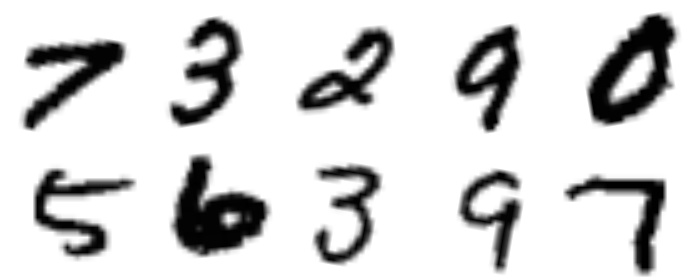 7 3 2 9 0
5 6 3 9 7